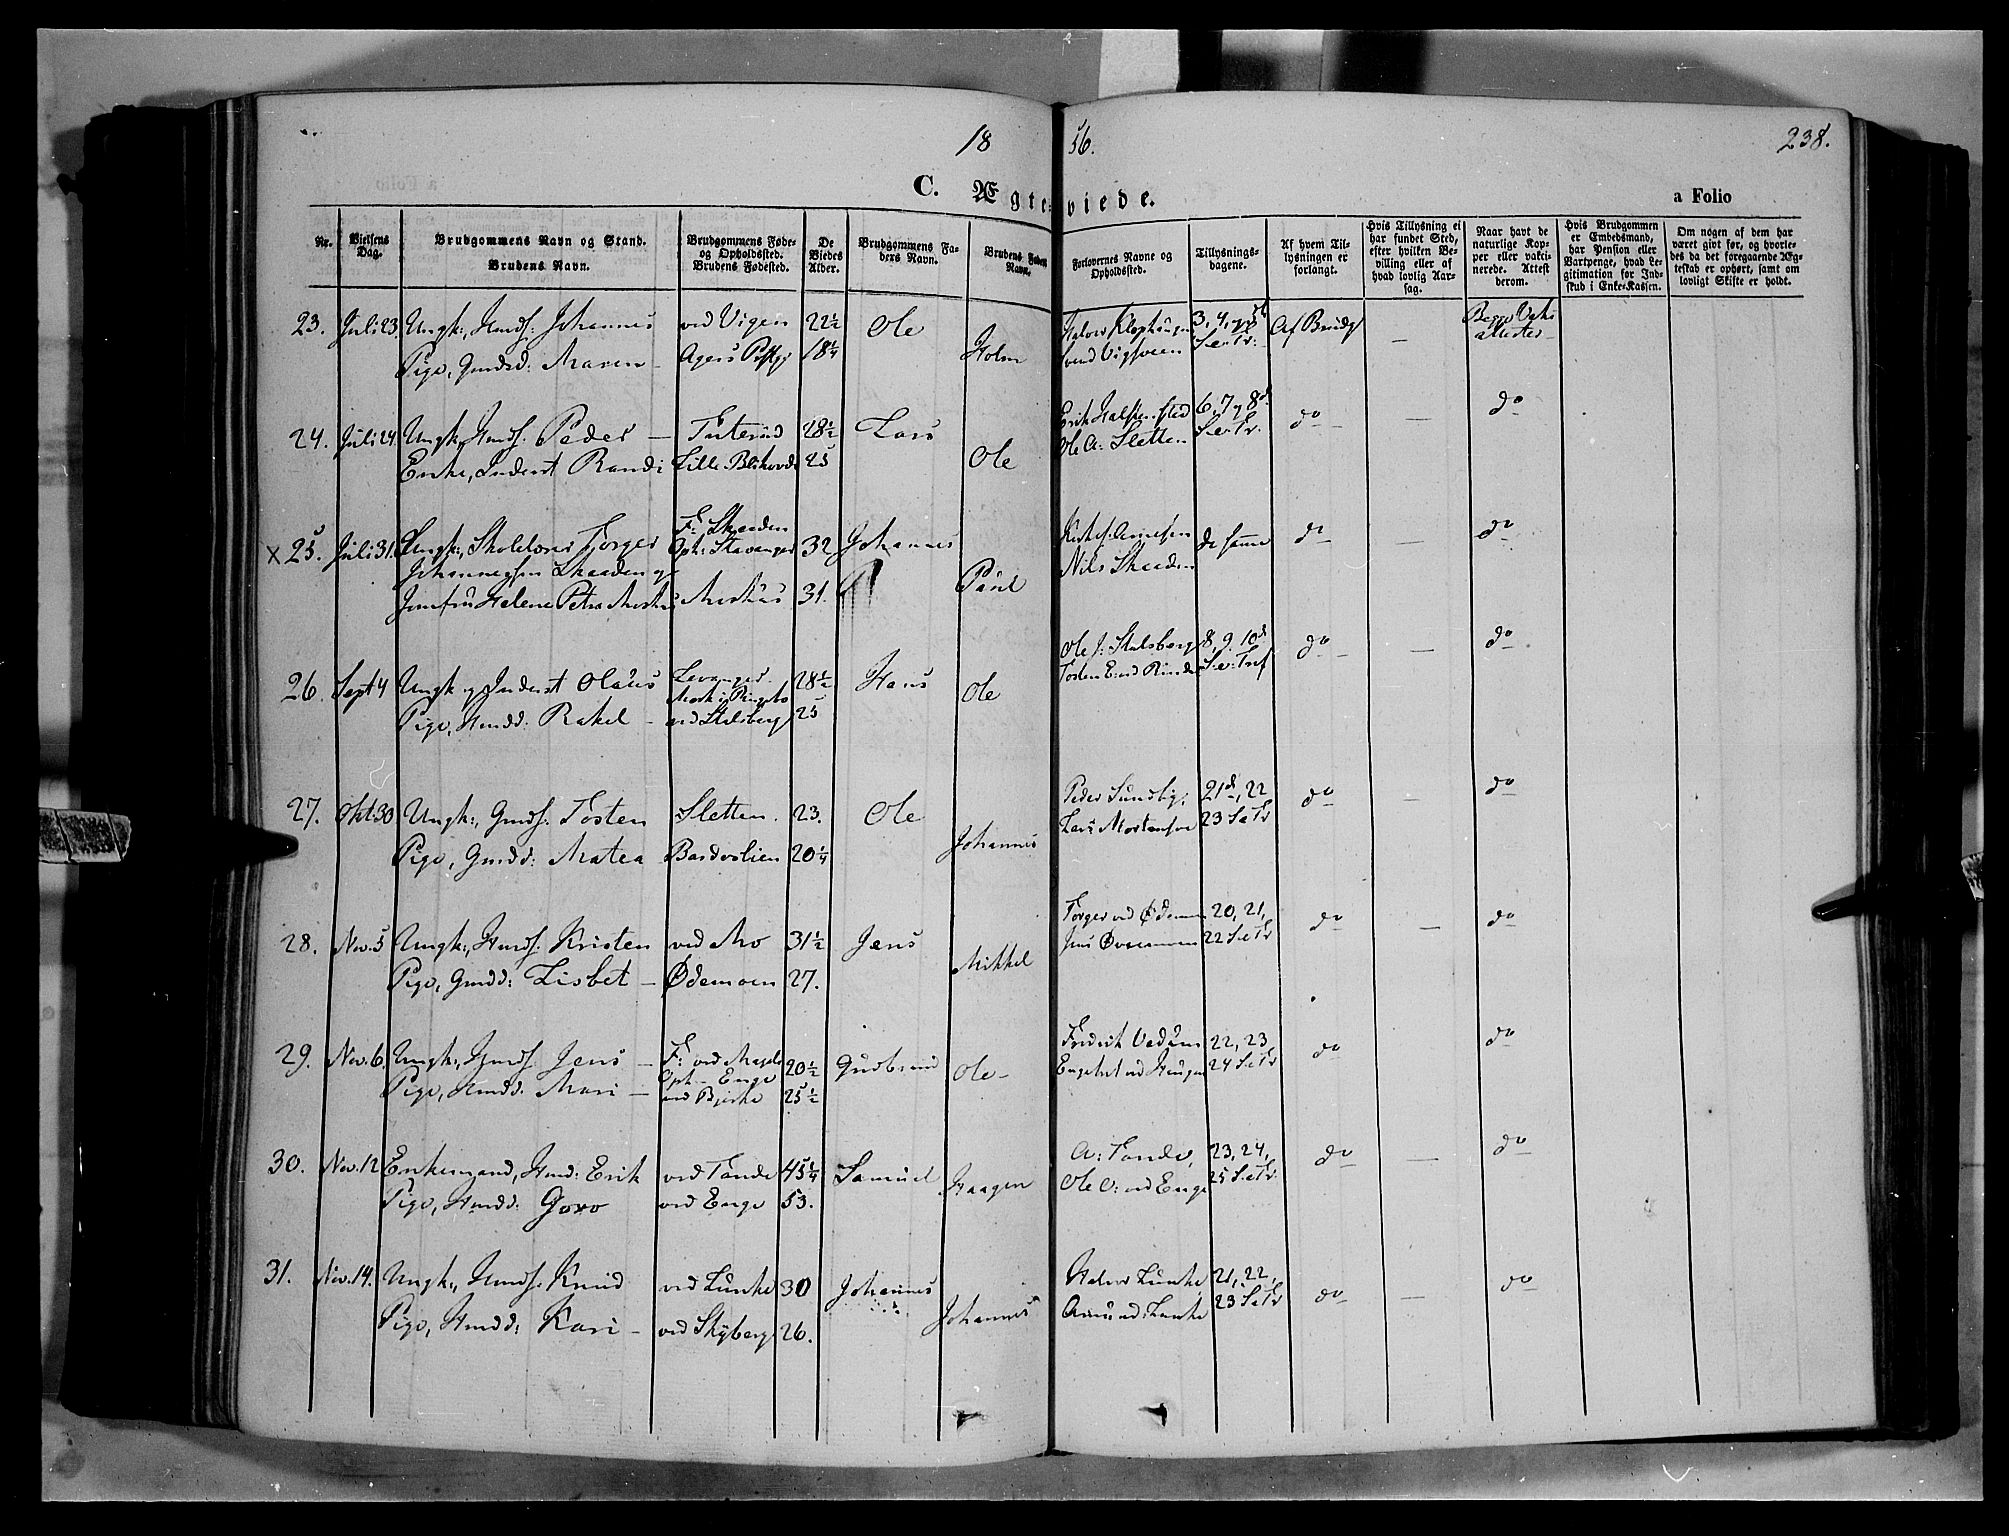 18 56. 238.
C. Ægteviede. a Folio
Nr.
Vielsens Dag.
Brudgommens Navn og Stand. Brudens Navn.
Brudgommens Føde- og Opholdssted. Brudens Fødested.
De Viedes Alder.
Brudgommens Faders Navn.
Brudens Faders Navn.
Forlovernes Navne og Opholdssted.
Tillysnings-dagene.
Af hvem Tillysningen er forlangt.
Hvis Tillysning ei har fundet Sted, efter hvilken Bevilling eller af hvad lovlig Aarsag.
Naar havt de naturlige Kopper eller vaktinerede. Attest derom.
Hvis Brudgommen er Embedsmand, har Pension eller Vartpenge, hvad Legitimation for Indskud i Enke-Kassen.
Om nogen af dem har været givt før, og hvorledes da det foregaaende Ægteskab er ophørt, samt om lovligt Skifte er holdt.
23. Juli 23 Ungk:, Hmdf: Johannes ved Vigen 22½ Ole 3, 4, Af Brudg — Begge Vak:
Pige, Gmdsd: Maren – Agers 18¼ Holm S. e. Tr: attester –
24. Juli 24 Ungk:, Hmdf. Peder – Tuterud 28½ Lars Erik 6, 7 og 8d. do — do
Enke, Inderst Randi Lille 25 Ole Ole A: Sletten S. e. Tr.
x 25. Juli 31. Ungk:, Torger F: Skaaden Oph: Stavanger 32 Johannes Arnesen de samme do do
Johannessen Skaaden og Nils Skaaden
Jomfru Helene Petra 31. Paul
26. Sept 4 Ungk. og Inderst Olaus Levanger 28½ Hans Ole J: Stalsberg 8, 9, 10d do — do
Pige, Hmdd: Rakel – ved Stalsberg 25 Ole Tosten
27. Okt. 30 Ungk:, Gmdf. Tosten Sletten. 23. Ole Peder Sundby: 21d, 22 do — do
Pige, Gmdd: Matea 20¼ Johannes Lars Mortensen 23 S e Tr
28. Nov. 5 Ungk:, Hmdf. Kristen ved Mo 31½ Jens Torger ved Ødemoen 20, 21, do — do
Pige, Gmdd: Lisbet – Ødemoen 27. Mikkel Jens 22 S e Tr
29. Nov. 6. Ungk:, Jens – F: ved Oph – Enge 20½ Gudbrand Fredrik 22, 23 do do
Pige, Hmdd. Mari – ved Bjerke 25½ Ole – ved Haugen 24 S e Tr
30. Nov. 12 Enkemand, Hmd: Erik ved Tande 45¼ Samuel A: Tande, 23, 24, do — do
Pige, Hmdd: Goro ved Enge 53. Haagen Ole O: ved Enge 25 S. e Tr.
31. Nov. 14. Ungk:, Hmdf. Knud ved Lunke 30 Johannes Halvor Lunke, 21, 22, do — do
Pige, Hmdd: Kari – ved Skyberg 26. Johannes Amund: Lunke 23 S e Tr